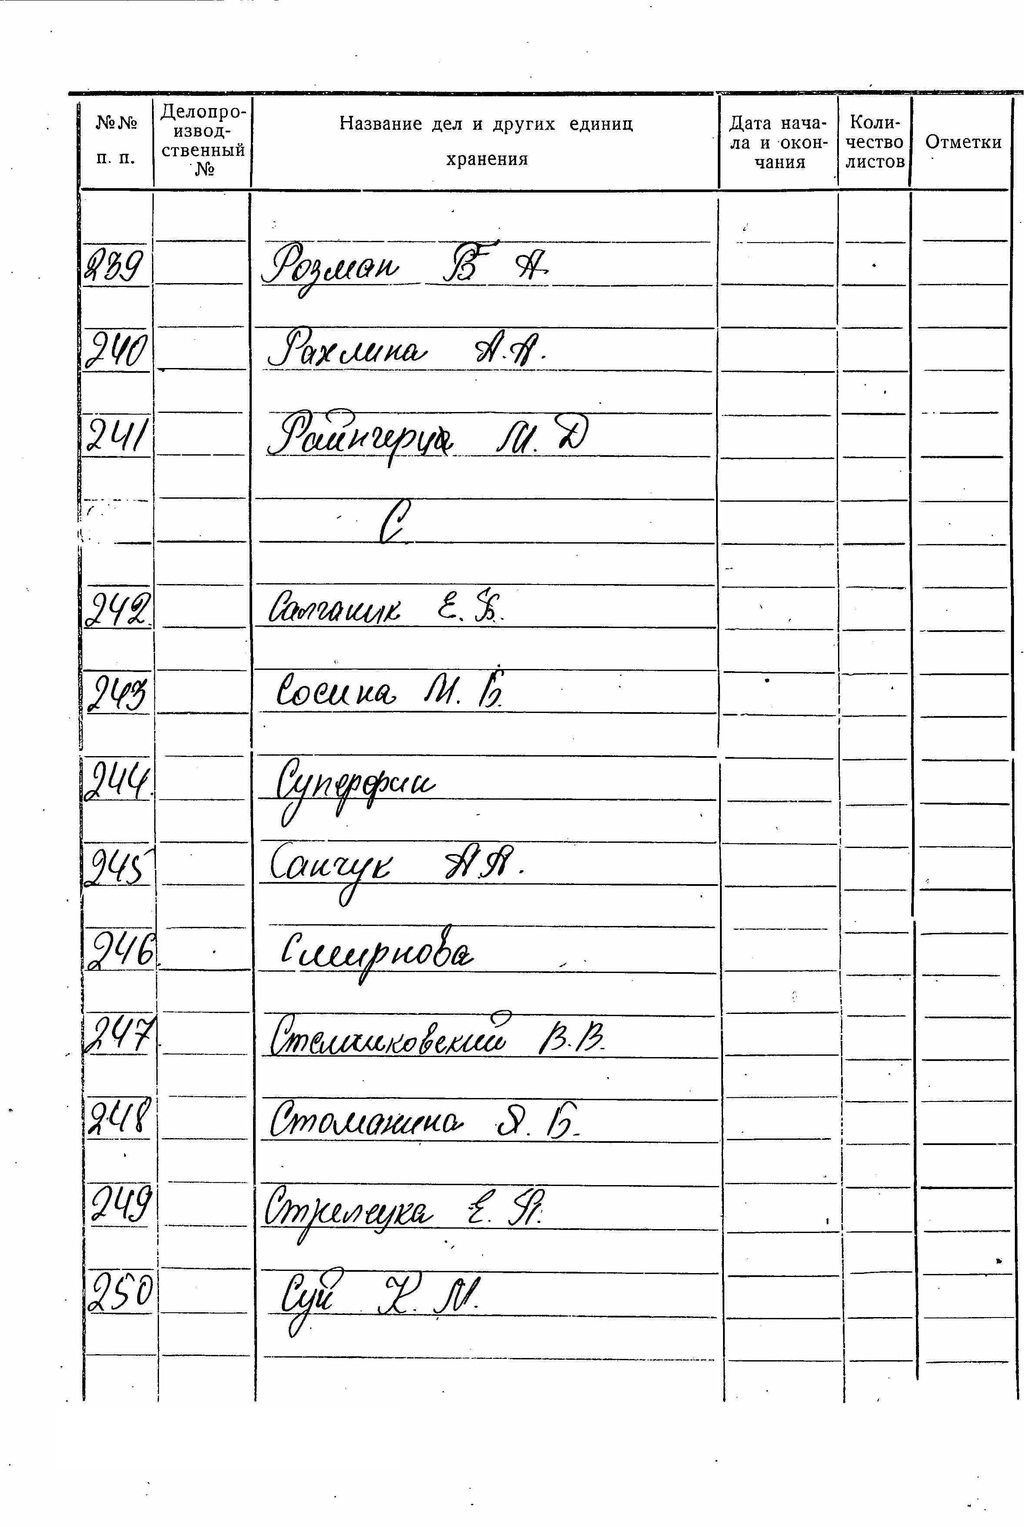 №№ п. п.
Делопроизводственный №
Название дел и других единиц хранения
Дата начала и окончания
Количество листов
Отметки
239 Розман Б А
240 Рахлина А.А.
241 Райнгерца М. Д
С
242 Салганик Е. Б.
243 Сосина М. Б.
244. Суперфин
245 Санчук А А.
246 Смирнова
247 Стемчиковский В.В.
248 Стоманина Я. Б.
249 Стрелеука Е. Я.
250 Суй К. М.